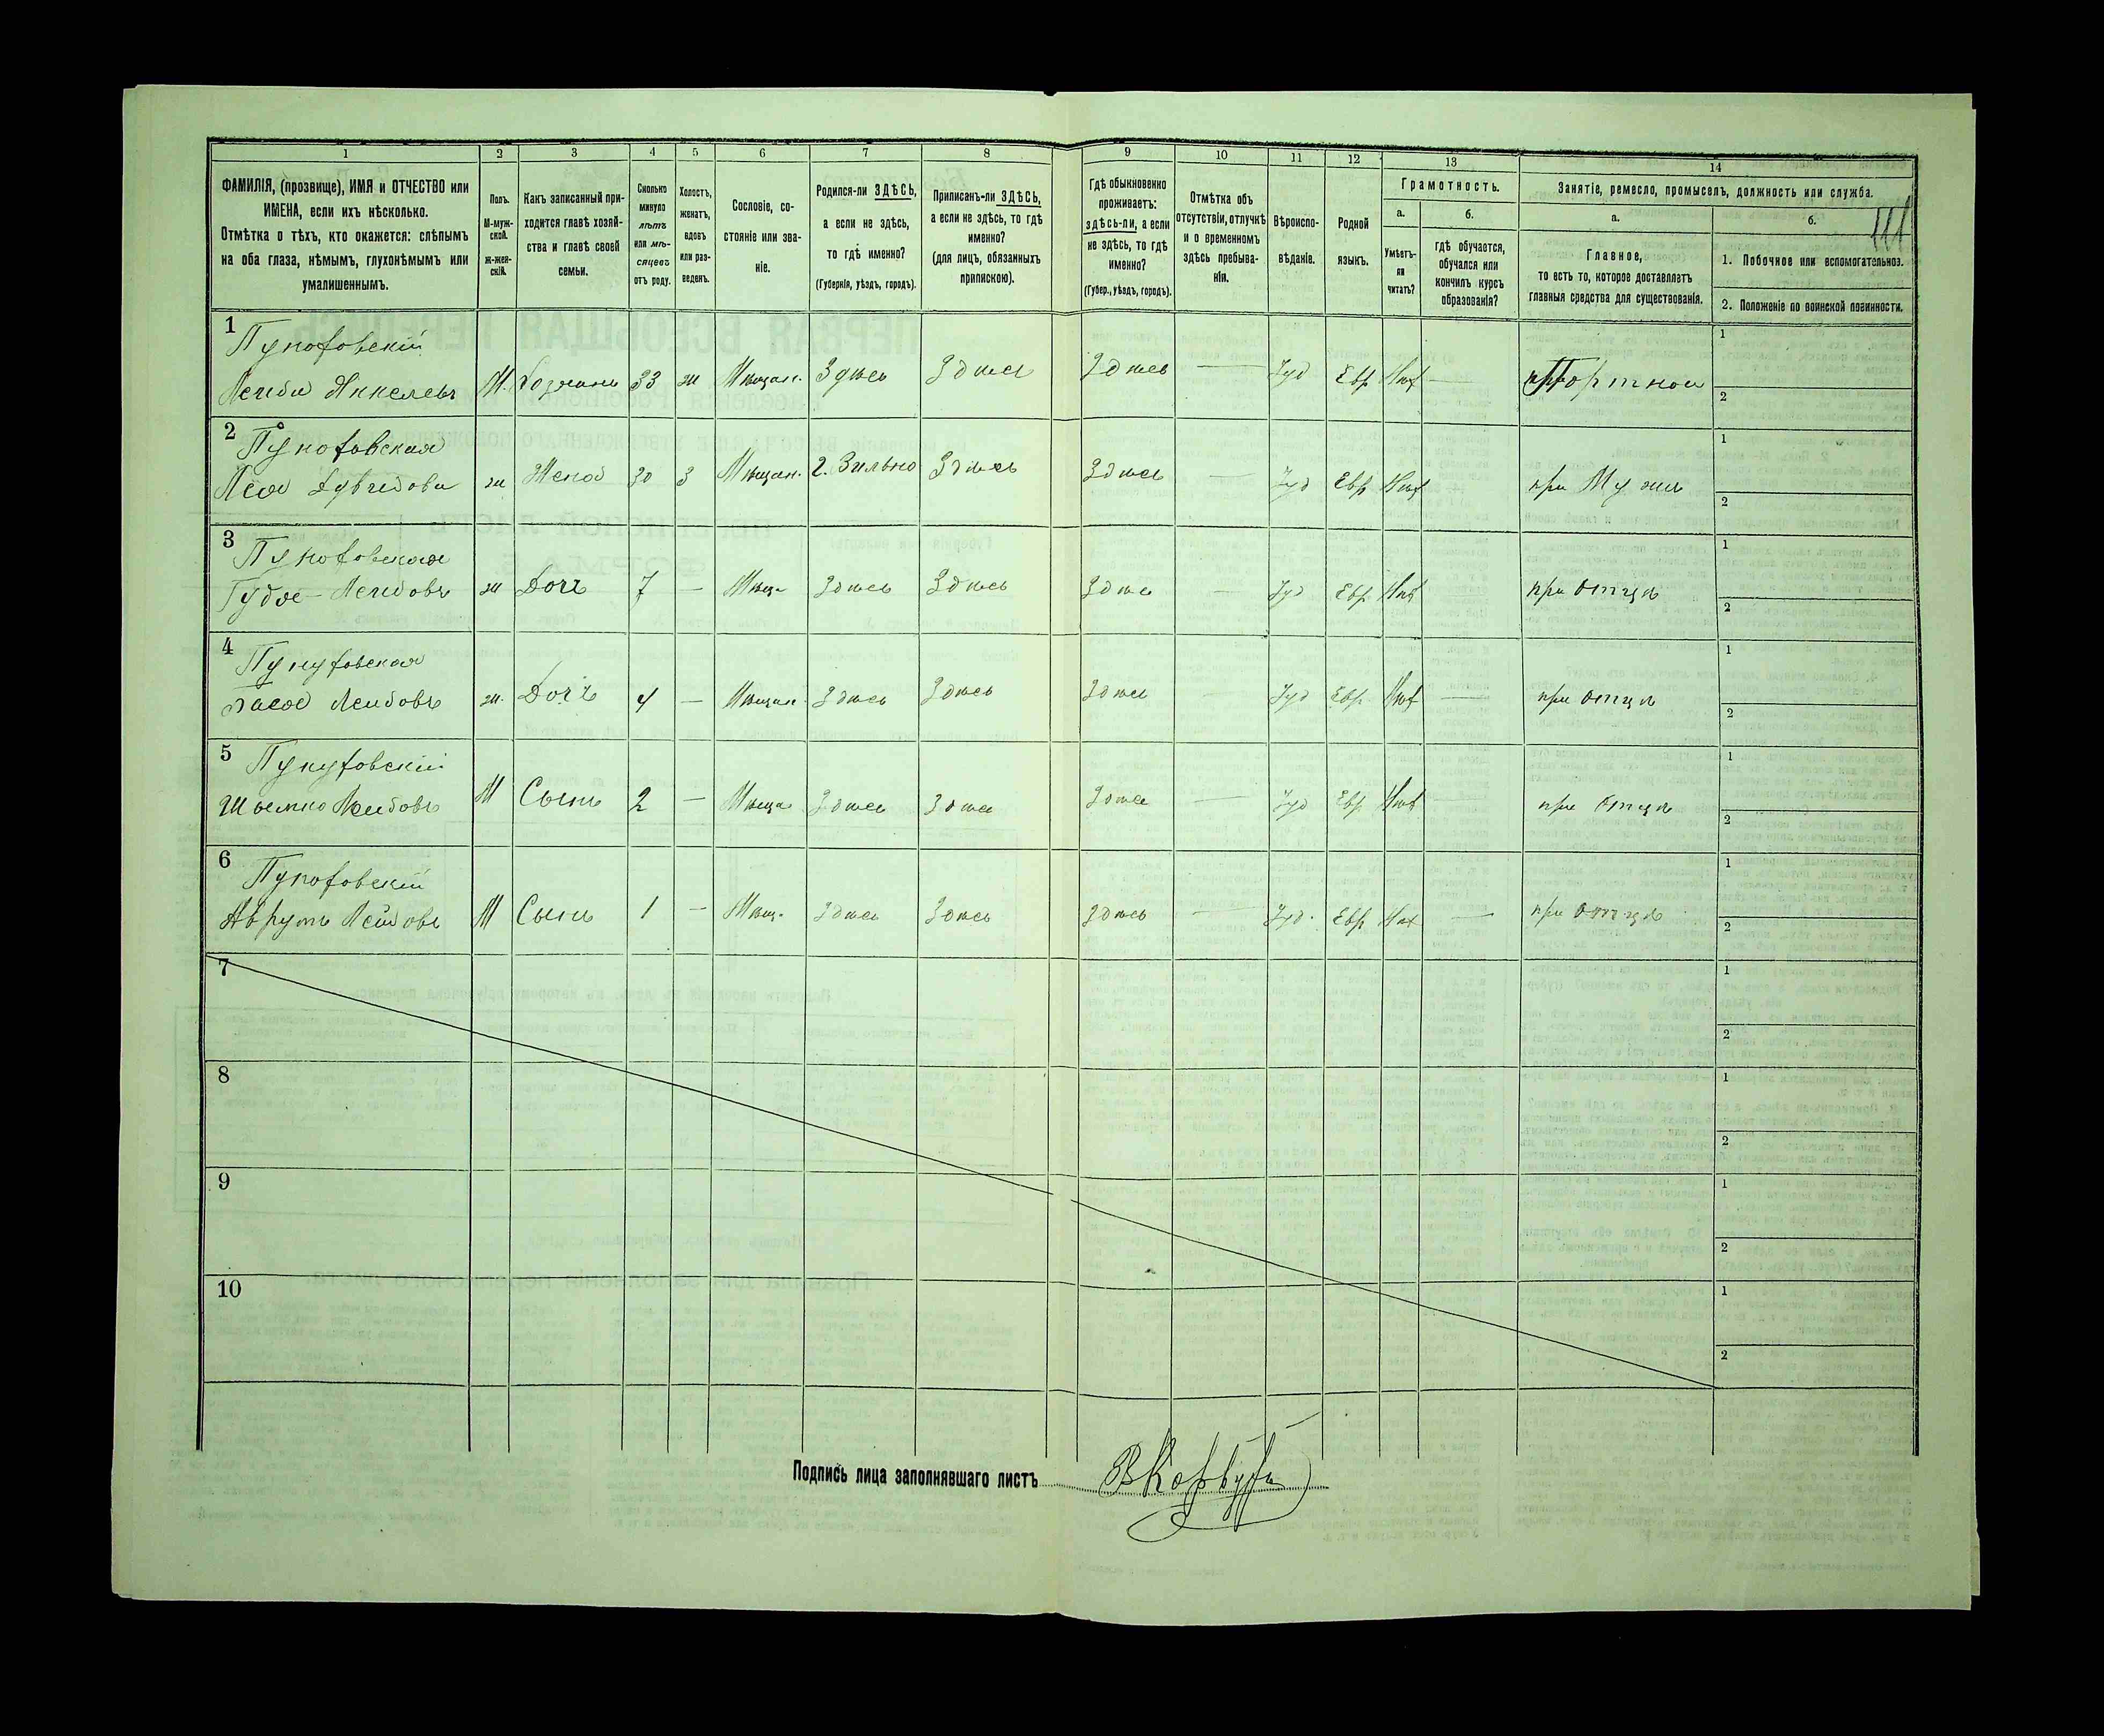 1 2 3 4 5 6 7 8 9 10 11 12 13 14
ФАМИЛІЯ, (прозвище), ИМЯ и ОТЧЕСТВО или
ИМЕНА, если ихъ нѣсколько.
Отмѣтка о тѣхъ, кто окажется: слѣпымъ
на оба глаза, нѣмымъ, глухонѣмымъ или
умалишеннымъ.
Полъ.
М-муж-
ской.
Ж-жен-
скій.
Какъ записанный при-
ходится главѣ хозяй-
ства и главѣ своей
семьи.
Сколько
минуло
лѣтъ
или мѣ-
сяцевъ
отъ роду.
Холостъ,
женатъ,
вдовъ
или раз-
веденъ.
Сословіе, со-
стояніе или зва-
ніе.
Родился-ли ЗДѢСЬ,
а если не здѣсь,
то гдѣ именно?
(Губернія, уѣздъ, городъ).
Приписанъ-ли ЗДѢСЬ,
а если не здѣсь, то гдѣ
именно?
(для лицъ, обязанныхъ
припискою).
Гдѣ обыкновенно
проживаетъ:
здѣсь-ли, а если
не здѣсь, то гдѣ
именно?
(Губер., уѣздъ, городъ).
Отмѣтка объ
отсутствіи, отлучкѣ
и о временномъ
здѣсь пребыва-
ніи.
Вѣроиспо-
вѣданіе.
Родной
языкъ.
Грамотность.
а.
Умѣетъ-
ли
читать?
б.
гдѣ обучается,
обучался или
кончилъ курсъ
образованія?
Занятіе, ремесло, промыселъ, должность или служба.
а.
Главное,
то есть то, которое доставляетъ
главныя средства для существованія.
б.
111
1. Побочное или вспомогательное.
2. Положеніе по воинской повинности.
1
Лейба Янкелевъ М. Хозяинъ 33 ж Мѣщан. Здѣсь Здѣсь Здѣсь — Іуд Евр Нѣт — Портной
1
2
2
Жена 30 З Мѣщан. г. Вильно Здѣсь Здѣсь — Іуд Евр Нѣт при Мужѣ
1
2
3
ж Дочь 7 — Мѣщ Здѣсь Здѣсь Здѣсь — Іуд Евр Нѣт при Отцѣ
1
2
4
Лейбовъ ж. Дочь 4 — Мѣщан. Здѣсь Здѣсь Здѣсь — Іуд Евр Нѣт — при Отцѣ
1
2
5
Лейбовъ М Сынъ 2 — Мѣща Здѣсь Здѣсь Здѣсь — Іуд Евр Нѣт при Отцѣ
1
2
6
Аврумъ Лейбовъ М Сынъ 1 — Мѣщ. Здѣсь Здѣсь Здѣсь — Іуд. Евр Нѣт — при Отцѣ
1
2
7
1
2
8
1
2
9
1
2
10
1
2
Подпись лица заполнявшаго листъ